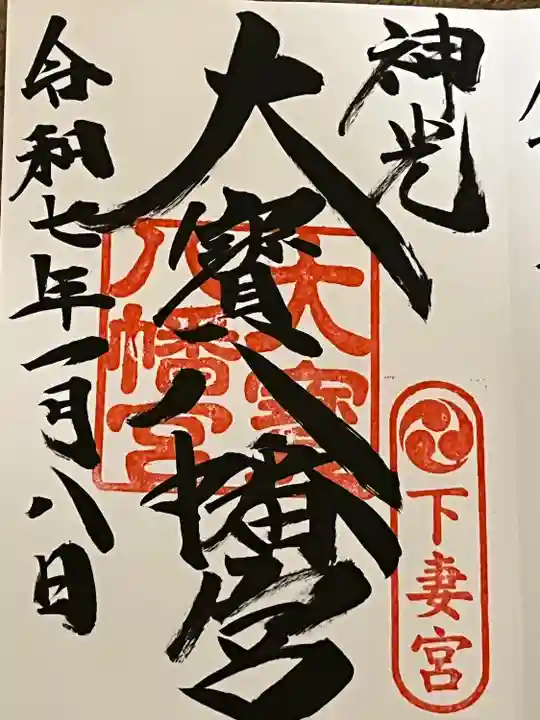 神光
大寳八幡宮
大寳
八幡宮
下妻宮
令和七年一月八日